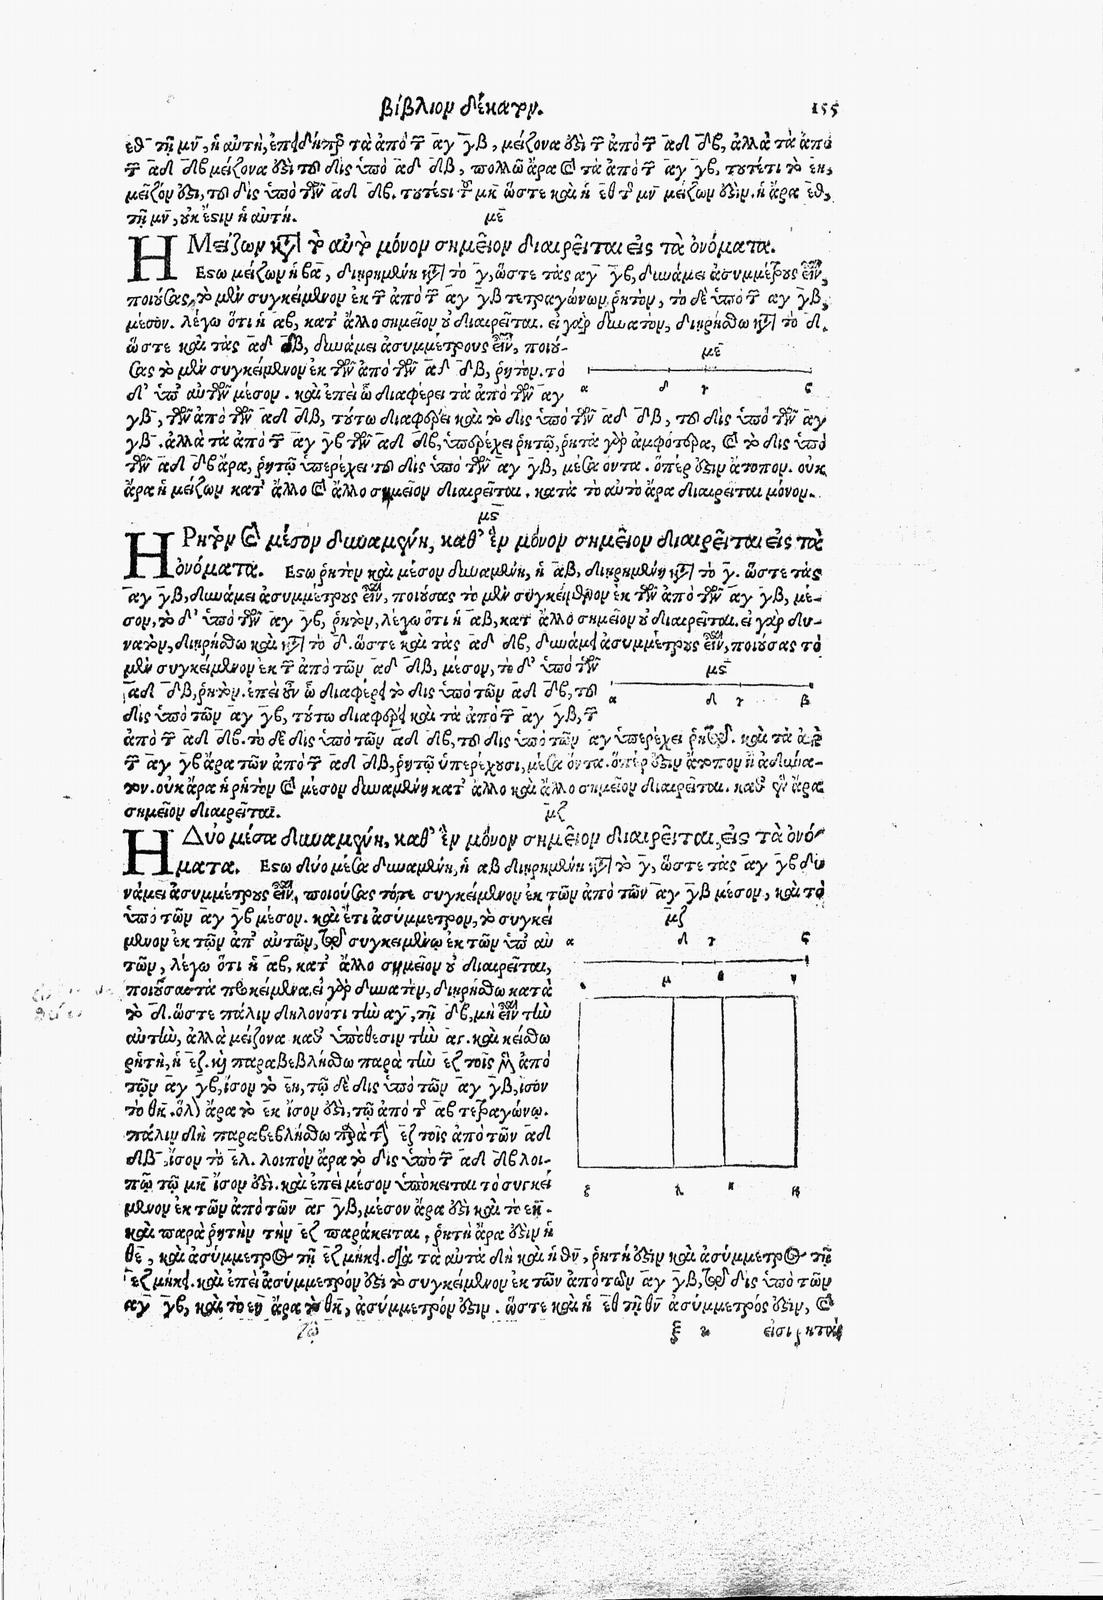 βίβλιον δέκατον. 155
εθ τῇ μν, ἡ αὐτὴ, ἐπειδήπερ τὰ ἀπὸ τῶν αγ γβ, μείζονα ἐστὶ τῶν ἀπὸ τῶν αδ δβ, ἀλλὰ τὰ ἀπὸ
τῶν αδ δβ μείζονα ἐστὶ τοῦ δὶς ὑπὸ αδ δβ, πολλῷ ἄρα καὶ τὰ ἀπὸ τῶν αγ γβ, τουτέστι τὸ εκ,
μεῖζόν ἐστι, τοῦ δὶς ὑπὸ τῶν αδ δβ. τουτέστι τοῦ μκ ὥστε καὶ ἡ εθ τῆς μν μείζων ἐστὶν. ἡ ἄρα εθ,
τῇ μν, οὐκ ἔστιν ἡ αὐτή.
με
Η Μείζων κατὰ τὸ αὐτὸ μόνον σημεῖον διαιρεῖται εἰς τὰ ὀνόματα.
Εστω μείζων ἡ βα, διῃρημένη κατὰ τὸ γ, ὥστε τὰς αγ γβ, δυνάμει ἀσυμμέτρους εἶναι,
ποιούσας, τὸ μὲν συγκείμενον ἐκ τῶν ἀπὸ τῶν αγ γβ τετραγώνων ῥητὸν, τὸ δὲ ὑπὸ τῶν αγ γβ,
μέσον. λέγω ὅτι ἡ αβ, κατ᾽ ἄλλο σημεῖον οὐ διαιρεῖται. εἰ γὰρ δυνατὸν, διῃρήσθω κατὰ τὸ δ,
ὥστε καὶ τὰς αδ δβ, δυνάμει ἀσυμμέτρους εἶναι, ποιού-
σας τὸ μὲν συγκείμενον ἐκ τῶν ἀπὸ τῶν αδ δβ, ῥητὸν. τὸ
δ᾽ ὑπ᾽ αὐτῶν μέσον. καὶ ἐπεὶ ᾧ διαφέρει τὰ ἀπὸ τῶν αγ
με
α δ γ ς
γβ, τῶν ἀπὸ τῶν αδ δβ, τούτω διαφέρει καὶ τὸ δὶς ὑπὸ τῶν αδ δβ, τοῦ δὶς ὑπὸ τῶν αγ
γβ. ἀλλὰ τὰ ἀπὸ τῶν αγ γβ τῶν αδ δβ, ὑπερέχει ῥητῷ, ῥητὰ γὰρ ἀμφότερα, καὶ τὸ δὶς ὑπὸ
τῶν αδ δβ ἄρα, ῥητῷ ὑπερέχει τοῦ δὶς ὑπὸ τῶν αγ γβ, μέσα ὄντα. ὅπερ ἐστὶν ἄτοπον. οὐκ
ἄρα ἡ μείζων κατ᾽ ἄλλο καὶ ἄλλο σημεῖον διαιρεῖται. κατὰ τὸ αὐτὸ ἄρα διαιρεῖται μόνον.
μς
Η Ρητὸν καὶ μέσον δυναμένη, καθ᾽ ἓν μόνον σημεῖον διαιρεῖται εἰς τὰ
ὀνόματα. Εστω ῥητὸν καὶ μέσον δυναμένη, ἡ αβ, διῃρημένη κατὰ τὸ γ. ὥστε τὰς
αγ γβ, δυνάμει ἀσυμμέτρους εἶναι, ποιούσας τὸ μὲν συγκείμενον ἐκ τῶν ἀπὸ τῶν αγ γβ, μέ-
σον, τὸ δ᾽ ὑπὸ τῶν αγ γβ, ῥητὸν, λέγω ὅτι ἡ αβ, κατ᾽ ἄλλο σημεῖον οὐ διαιρεῖται. εἰ γὰρ δυ-
νατὸν, διῃρήσθω καὶ κατὰ τὸ δ. ὥστε καὶ τὰς αδ δβ, δυνάμει ἀσυμμέτρους εἶναι, ποιούσας τὸ
μὲν συγκείμενον ἐκ τῶν ἀπὸ τῶν αδ δβ, μέσον, τὸ δ᾽ ὑπὸ τῶν
αδ δβ, ῥητὸν. ἐπεὶ οὖν ᾧ διαφέρει τὸ δὶς ὑπὸ τῶν αδ δβ, τοῦ
δὶς ὑπὸ τῶν αγ γβ, τούτω διαφέρει καὶ τὰ ἀπὸ τῶν αγ γβ, τῶν
μς
α δ γ β
ἀπὸ τῶν αδ δβ. τὸ δὲ δὶς ὑπὸ τῶν αδ δβ, τοῦ δὶς ὑπὸ τῶν αγ ὑπερέχει ῥητῷ. καὶ τὰ ἀπὸ
τῶν αγ γβ ἄρα τῶν ἀπὸ τῶν αδ δβ, ῥητῷ ὑπερέχουσι, μέσα ὄντα. ὅπερ ἐστὶν ἄτοπον ἢ ἀδύνα-
τον. οὐκ ἄρα ἡ ῥητὸν καὶ μέσον δυναμένη κατ᾽ ἄλλο καὶ ἄλλο σημεῖον διαιρεῖται. καθ᾽ ἓν ἄρα
σημεῖον διαιρεῖται.
μζ
Η Δύο μέσα δυναμένη, καθ᾽ ἓν μόνον σημεῖον διαιρεῖται, εἰς τὰ ὀνό-
ματα. Εστω δύο μέσα δυναμένη, ἡ αβ διῃρημένη κατὰ τὸ γ, ὥστε τὰς αγ γβ δυ
νάμει ἀσυμμέτρους εἶναι, ποιούσας τότε συγκείμενον ἐκ τῶν ἀπὸ τῶν αγ γβ μέσον, καὶ τὸ
ὑπὸ τῶν αγ γβ μέσον. καὶ ἔτι ἀσύμμετρον, τὸ συγκεί
μενον ἐκ τῶν ἀπ᾽ αὐτῶν, τῷ συγκειμένῳ ἐκ τῶν ὑπ᾽ αὐ
τῶν, λέγω ὅτι ἡ αβ, κατ᾽ ἄλλο σημεῖον οὐ διαιρεῖται,
ποιοῦσα τὰ προκείμενα, εἰ γὰρ δυνατὸν, διῃρήσθω κατὰ
τὸ δ. ὥστε πάλιν δηλονότι τὴν αγ, τῇ δβ, μὴ εἶναι τὴν
αὐτὴν, ἀλλὰ μείζονα καθ᾽ ὑπόθεσιν τὴν αγ. καὶ κείσθω
ῥητὴ, ἡ εζ. καὶ παραβεβλήσθω παρὰ τὴν εζ τοῖς μὲν ἀπὸ
τῶν αγ γβ, ἴσον τὸ εη, τῷ δὲ δὶς ὑπὸ τῶν αγ γβ, ἴσον
τὸ θκ. ὅλον ἄρα τὸ εκ ἴσον ἐστὶ, τῷ ἀπὸ τῆς αβ τετραγώνῳ.
πάλιν δὴ παραβεβλήσθω παρὰ τὴν εζ τοῖς ἀπὸ τῶν αδ
δβ, ἴσον τὸ ελ. λοιπὸν ἄρα τὸ δὶς ὑπὸ τῶν αδ δβ λοι-
πῷ τῷ μκ ἴσον ἐστὶ. καὶ ἐπεὶ μέσον ὑπόκειται τὸ συγκεί
μενον ἐκ τῶν ἀπὸ τῶν αγ γβ, μέσον ἄρα ἐστὶ καὶ τὸ εη.
καὶ παρὰ ῥητὴν τὴν εζ παράκειται, ῥητὴ ἄρα ἐστὶν ἡ
μζ
α δ γ ς
θε, καὶ ἀσύμμετρος τῇ εζ μήκει. διὰ τὰ αὐτὰ δὴ καὶ ἡ θν, ῥητή ἐστιν καὶ ἀσύμμετρος τῇ
εζ μήκει. καὶ ἐπεὶ ἀσύμμετρόν ἐστι τὸ συγκείμενον ἐκ τῶν ἀπὸ τῶν αγ γβ, τῷ δὶς ὑπὸ τῶν
αγ γβ, καὶ τὸ εη ἄρα τῷ θκ, ἀσύμμετρόν ἐστιν. ὥστε καὶ ἡ εθ τῇ θν ἀσύμμετρός ἐστιν, καὶ
εἰσι ῥηταὶ